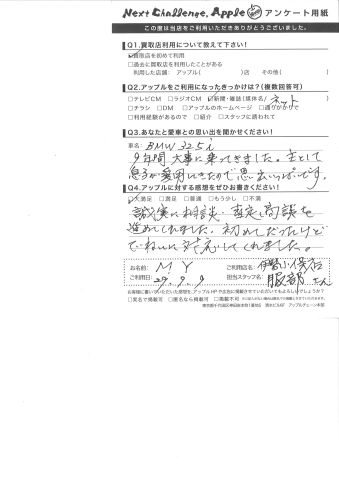 Next Challenge, Apple アンケート用紙
この度は当店をご利用いただきありがとうございました。
Q1.買取店利用について教えて下さい!
買取店を初めて利用
□過去に買取店を利用したことがある
利用した店舗: アップル( )店 その他( )
Q2.アップルをご利用になったきっかけは?(複数回答可)
□テレビCM □ラジオCM 新聞・雑誌(媒体名/ ネット
□チラシ □DM □アップルのホームページ □通りがかりで
□利用経験があるので □紹介 □スタッフに誘われて
Q3.あなたと愛車との思い出を聞かせください!
車名: BMW 325i
9年間大事に乗ってきました。主として
息子が愛用してきたので思い出いっぱいです。
Q4.アップルに対する感想をぜひお書きください!
大満足 □満足 □普通 □もう少し □不満
誠実に相談、査定、商談を
進めてくれました。初めてだったけど
ていねいに対応してくれました。
お名前: M Y ご利用店名: 伊勢小俣店
ご利用日: 29.9.9 担当スタッフ名: 服部さん
お客様に書いていただいた感想を、アップルHPや広告に掲載させていただいてもよろしいでしょうか?
□実名で掲載可 □匿名なら掲載可 □掲載不可